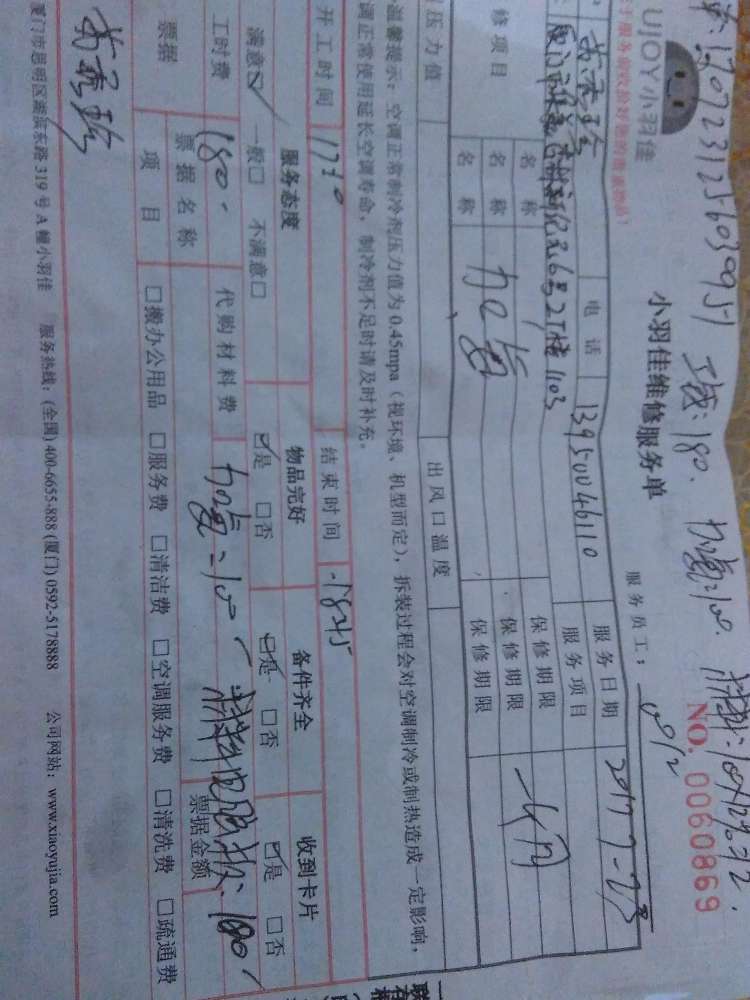 170723125603095
180.
UJOY小羽佳
小羽佳维修服务单
NO. 0060869
服务员工：
电话
13950046110
服务日期
2017-7-23
服务项目
修项目
名称
保修期限
名称
加氟
保修期限
名称
保修期限
压力值
出风口温度
温馨提示：空调正常制冷剂压力值为0.45mpa（视环境、机型而定），拆装过程会对空调制冷或制热造成一定影响，
调正常使用延长空调寿命，制冷剂不足时请及时补充。
开工时间
结束时间
服务态度
物品完好
备件齐全
收到卡片
满意☑ 一般□ 不满意□
☑是 □否
☑是 □否
☑是 □否
工时费
180.
代购材料费
加氟:100
票据
票据名称
票据金额
项目
□搬办公用品 □服务费 □清洁费 □空调服务费 □清洗费 □疏通费
厦门市思明区湖滨东路319号A幢小羽佳 服务热线：(全国)400-6655-888 (厦门)0592-5178888 公司网站：www.xiaoyujia.com